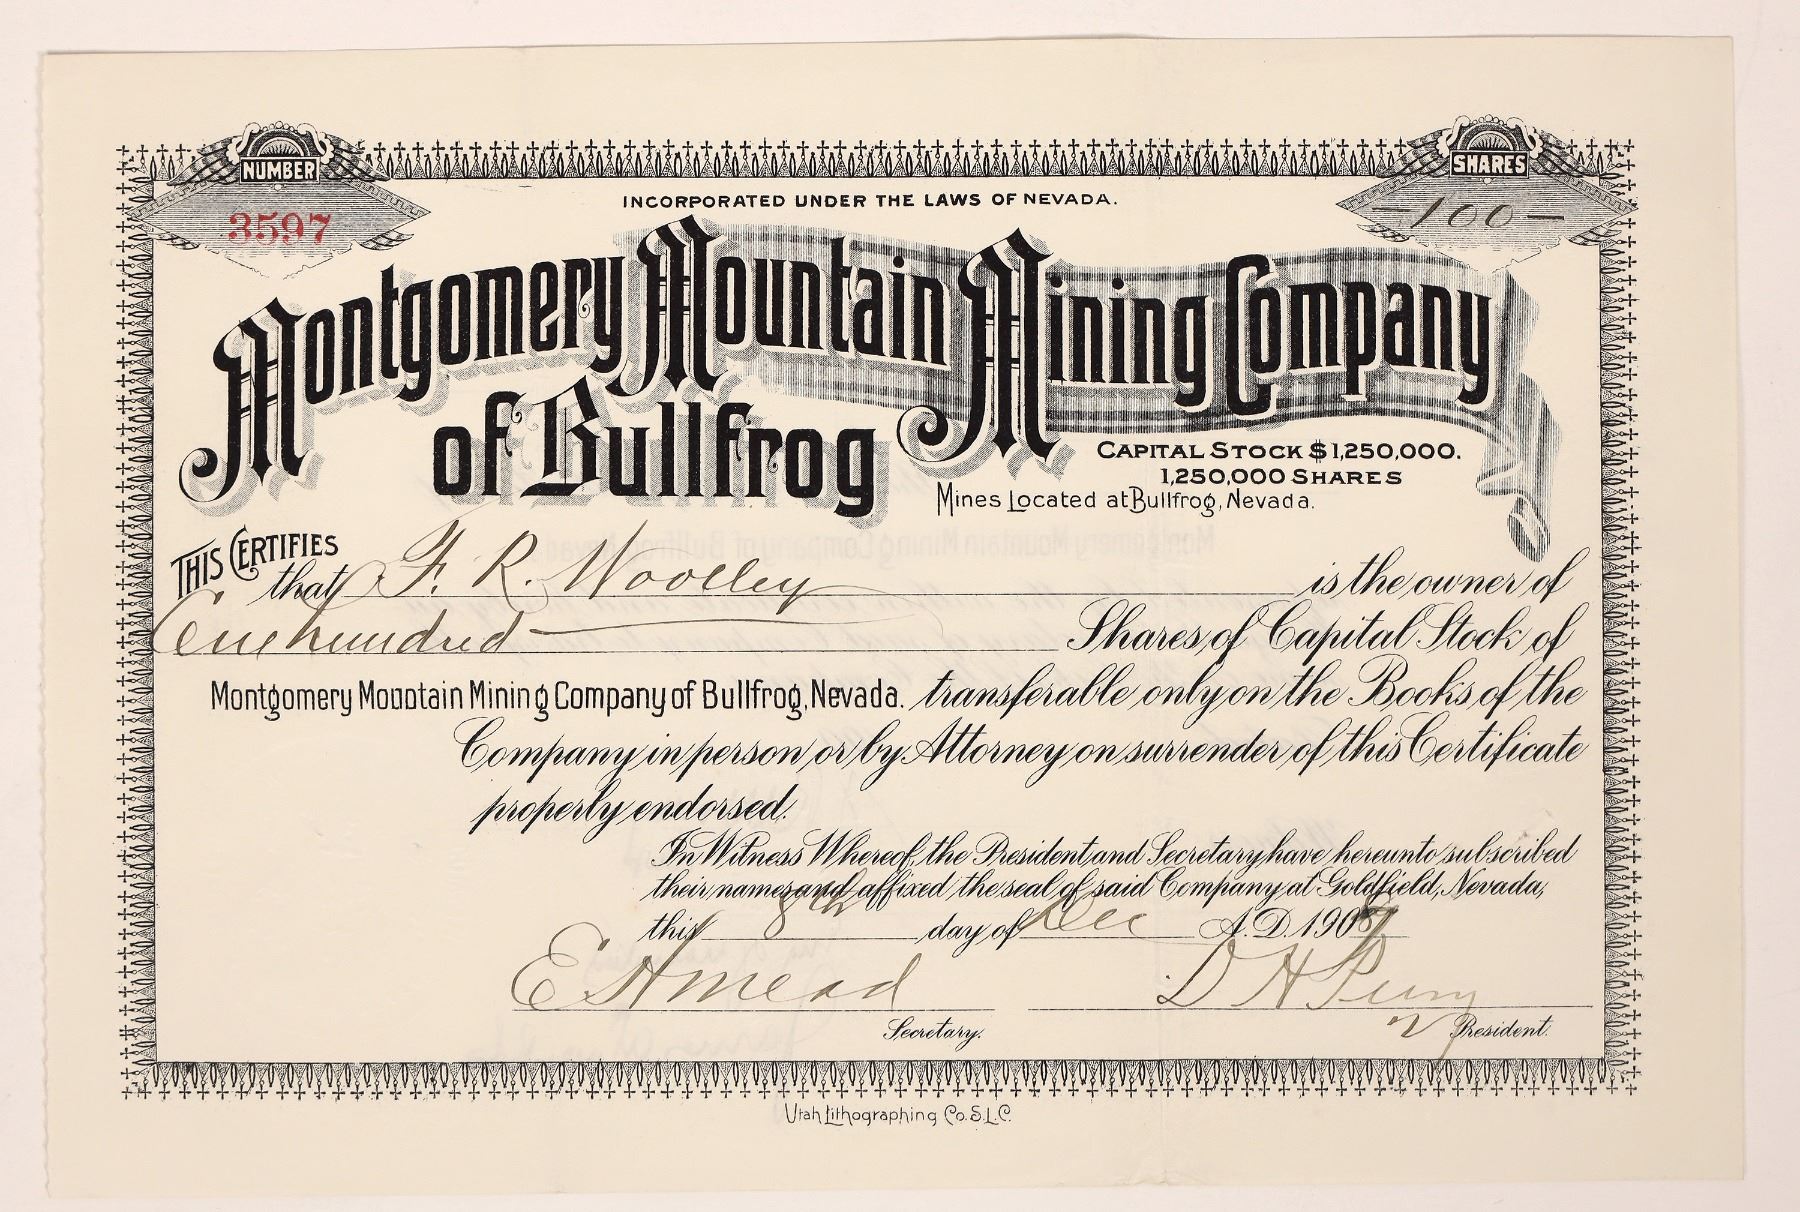 NUMBER
3597
SHARES
—100—
INCORPORATED UNDER THE LAWS OF NEVADA.
Montgomery Mountain Mining Company
of Bullfrog
CAPITAL STOCK $1,250,000.
1,250,000 SHARES
Mines Located at Bullfrog, Nevada.
THIS CERTIFIES
that F. R. Woolley is the owner of
One hundred Shares of Capital Stock of
Montgomery Mountain Mining Company of Bullfrog, Nevada. transferable only on the Books of the
Company in person or by Attorney on surrender of this Certificate
properly endorsed.
In Witness Whereof, the President and Secretary have hereunto subscribed
their names and affixed the seal of said Company at Goldfield, Nevada,
this 8th day of Dec A.D. 190
E S Mead D H
Secretary.
President.
Utah Lithographing Co. S.L.C.